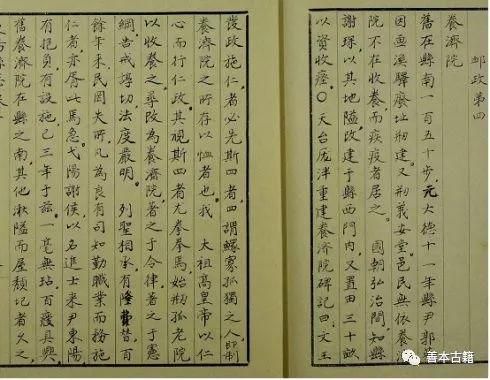 卹政第四
養濟院
舊在縣南一百五十步元大德十一年縣尹郭
因畫溪驛廢址剏建又剏義安堂邑民無依養濟
院不在收養而疾疫者居之 國朝弘治間知縣
謝琛以其地隘改建于縣西門內又置田三十畝
以資收瘞○天台龐泮重建養濟院碑記曰文王
發政施仁者必先斯四者四謂鰥寡孤獨之人即
養濟院之所存以恤者也我 太祖高皇帝以仁
心而行仁政其視斯四者尤拳拳焉始剏孤老院
以收養之尋改為養濟院著之于令律著之于憲
綱告戒諄切法度嚴明 列聖相承有隆替百
餘年來民罔失所凡為良有司知勤職業而務施
仁者亦胥此焉急弋陽謝侯以名進士來尹東陽
有抱負有設施已三年于茲一毫無玷百廢具興
舊養濟院在縣之南其他湫隘而屋頹圮者久之
善本古籍